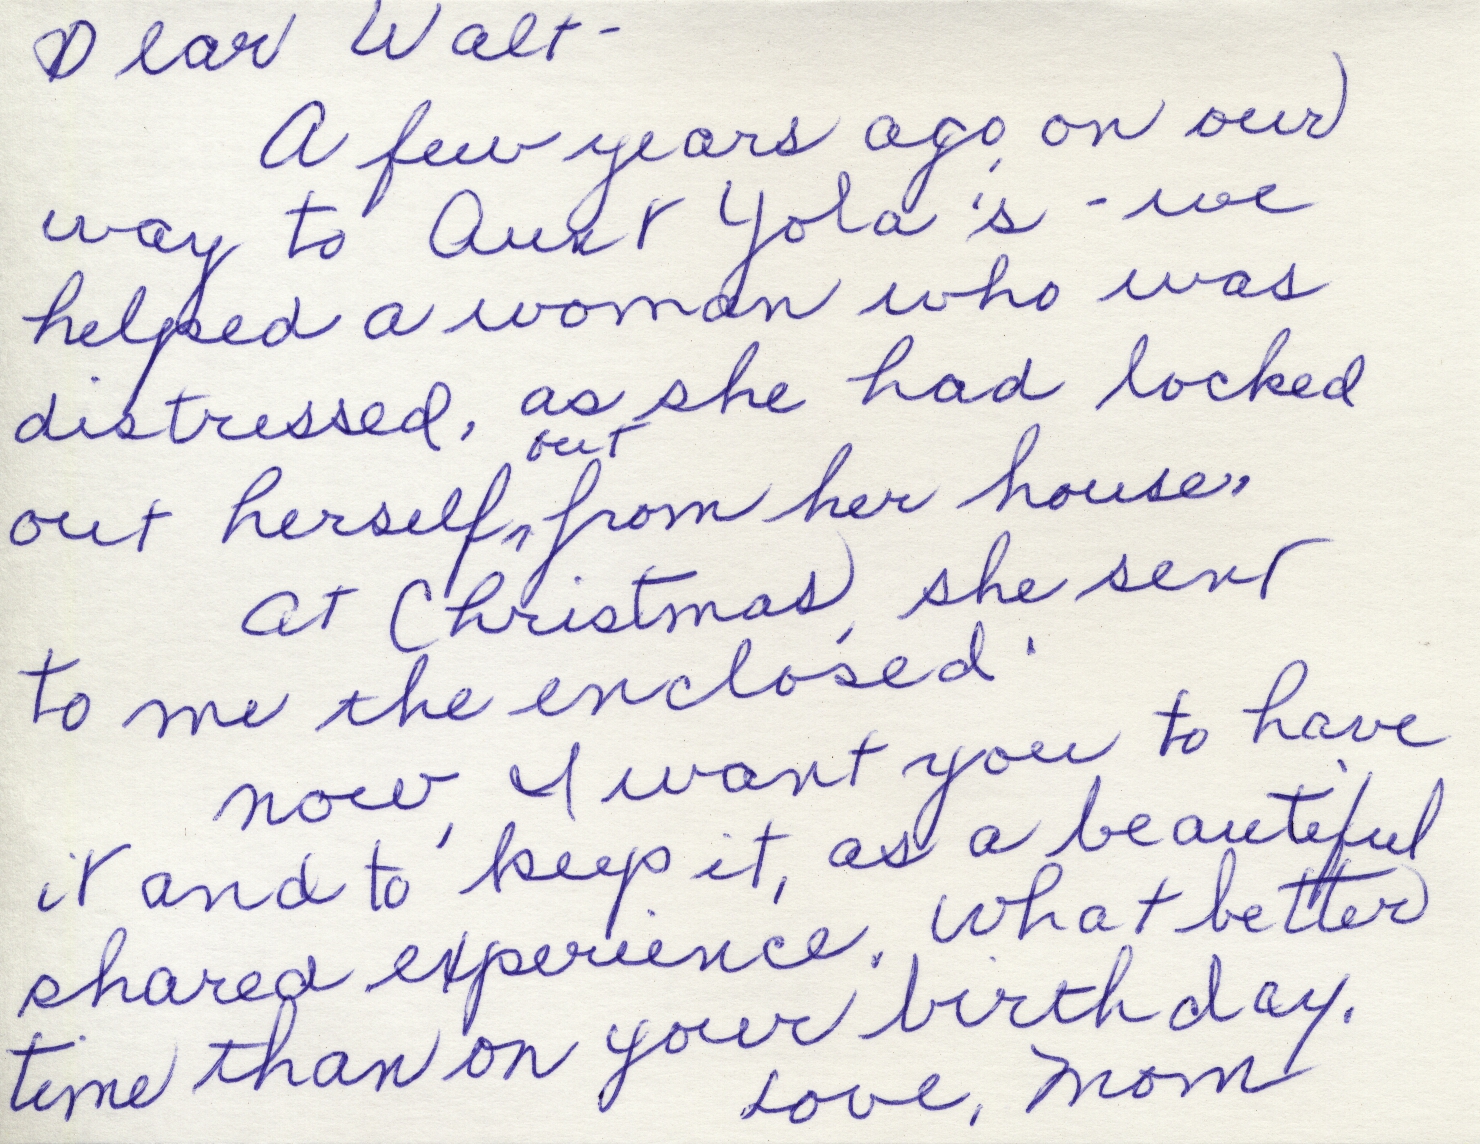 Dear Walt-
A few years ago, on our
way to Aunt Yola's - we
helped a woman who was
distressed, as she had locked
out herself, out from her house.
At Christmas, she sent
to me the enclosed.
Now, I want you to have
it and to keep it, as a beautiful
shared experience. What better
time than on your birthday.
Love, Mom